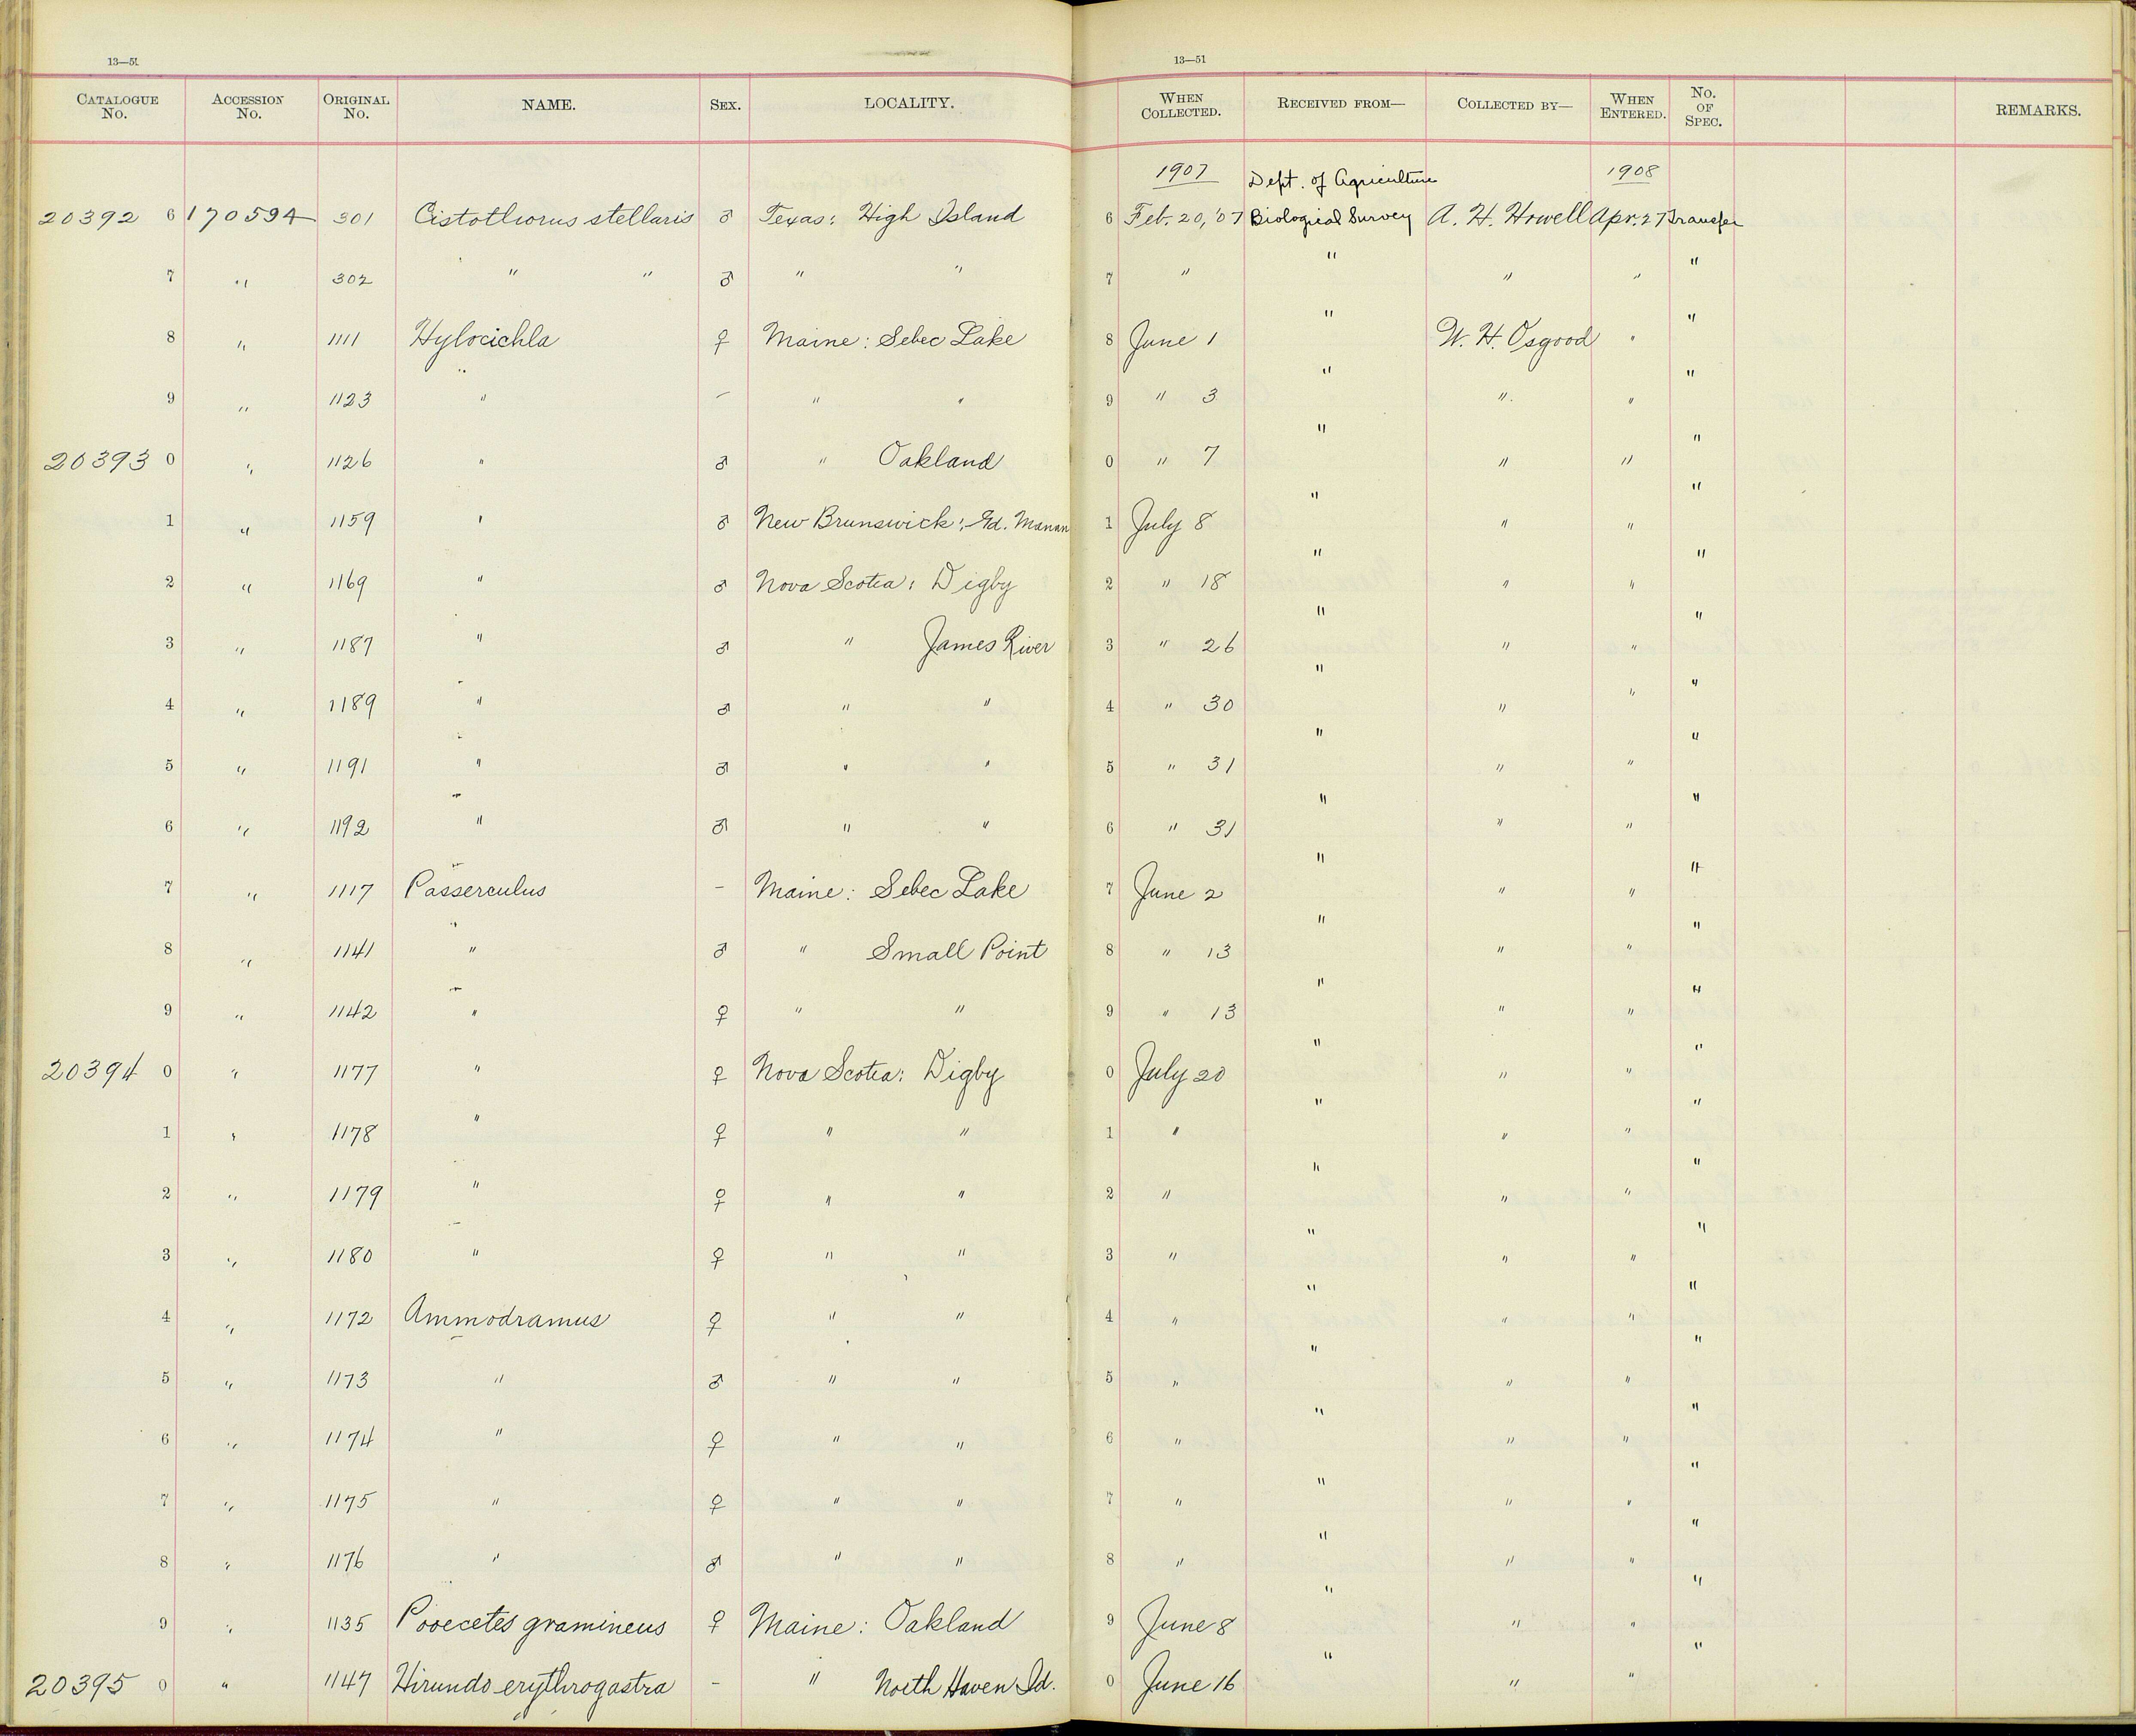 13—51 13—51
CATALOGUE No. ACCESSION No. ORIGINAL No. NAME. SEX. LOCALITY. WHEN COLLECTED. RECEIVED FROM— COLLECTED BY— WHEN ENTERED. No. OF SPEC. REMARKS.
1907 Dept. of Agriculture 1908
20392 6 170594 301 Cistothorus stellaris ♂ Texas: High Island 6 Feb. 20, '07 Biological Survey A. H. Howell Apr. 27 Transfer
7 " 302 " " ♂ " " 7 " " " " "
8 " 1111 Hylocichla ♀ Maine: Sebec Lake 8 June 1 " W. H. Osgood " "
9 " 1123 " — " " 9 " 3 " " " "
20393 0 " 1126 " ♂ " Oakland 0 " 7 " " " "
1 " 1159 " ♂ New Brunswick: Gd. Manan 1 July 8 " " " "
2 " 1169 " ♂ Nova Scotia: Digby 2 " 18 " " " "
3 " 1187 " ♂ " James River 3 " 26 " " " "
4 " 1189 " ♂ " " 4 " 30 " " " "
5 " 1191 " ♂ " " 5 " 31 " " " "
6 " 1192 " ♂ " " 6 " 31 " " " "
7 " 1117 Passerculus – Maine: Sebec Lake 7 June 2 " " " "
8 " 1141 " ♂ " Small Point 8 " 13 " " " "
9 " 1142 " ♀ " " 9 " 13 " " " "
20394 0 " 1177 " ♀ Nova Scotia: Digby 0 July 20 " " " "
1 " 1178 " ♀ " " 1 " " " " "
2 " 1179 " ♀ " " 2 " " " " "
3 " 1180 " ♀ " " 3 " " " " "
4 " 1172 Ammodramus ♀ " " 4 " " " " "
5 " 1173 " ♂ " " 5 " " " " "
6 " 1174 " ♀ " " 6 " " " " "
7 " 1175 " ♀ " " 7 " " " " "
8 " 1176 " ♂ " " 8 " " " " "
9 " 1135 Pooecetes gramineus ♀ Maine: Oakland 9 June 8 " " " "
20395 0 " 1147 Hirundo erythrogastra – " North Haven Id. 0 June 16 " " " "